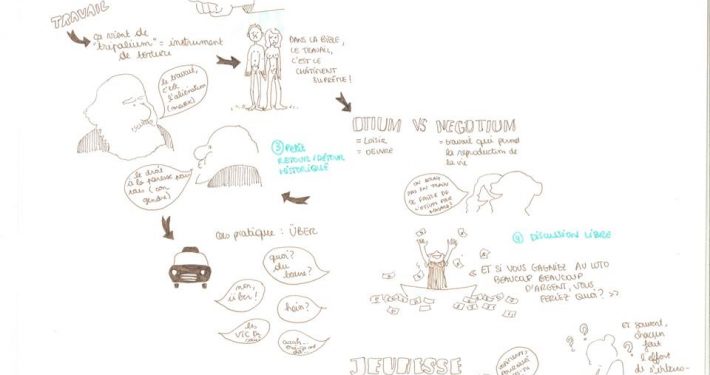 TRAVAIL
ça vient de
"trepalium" = instrument
de torture
DANS LA BIBLE,
LE TRAVAIL,
C'EST LE
CHÂTIMENT
SUPRÊME!
le travail,
c'est
l'aliénation
(marx)
③ PETIT
RETOUR/DÉTOUR
HISTORIQUE
le droit
à la paresse
(son
gendre)
OTIUM VS NEGOTIUM
= LOISIR
= OEUVRE
= travail qui
la reproduction de
la vie
ON
PAS EN TRAIN
DE FAIRE DE
L'OTIUM PAR
cas pratique : ÜBER
quoi?
du
non,
über!
hein?
les
VTC
④ DISCUSSION LIBRE
« ET SI VOUS GAGNIEZ AU LOTO
BEAUCOUP BEAUCOUP
D'ARGENT, VOUS
FERIEZ QUOI? »
JEUNESSE
et souvent,
chacun
fait
l'effort